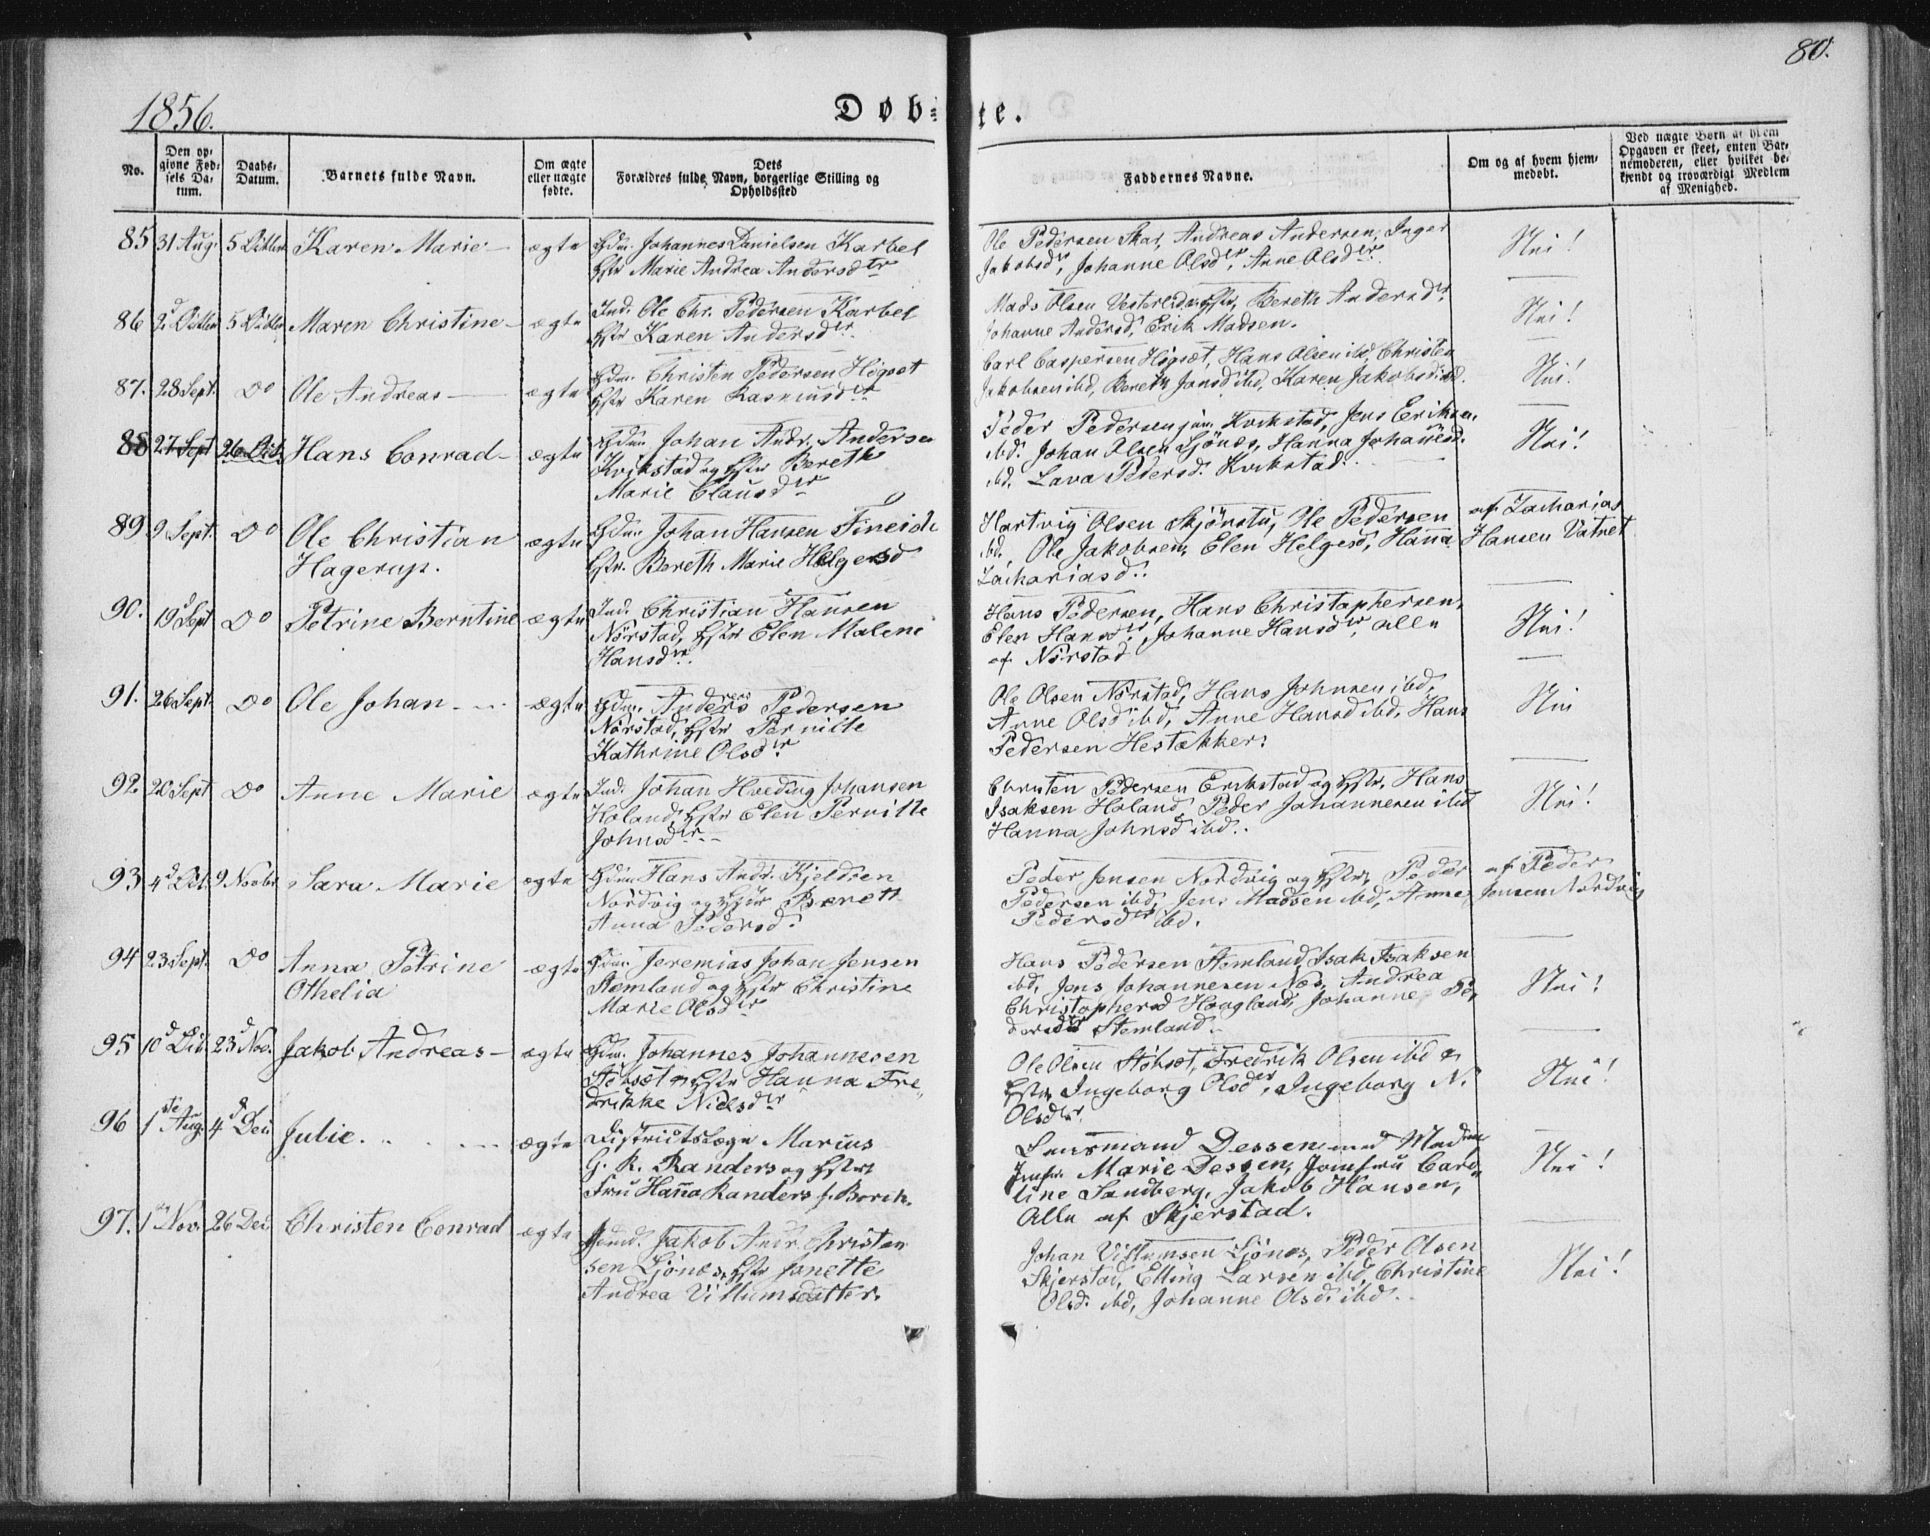 80.
1856.
Døb=
te.
No.
Den op=
givne Fød=
sels Da=
tum.
Daabs=
Datum.
Barnets fulde Navn.
Om ægte
eller uægte
fødte.
Dets
Forældres fulde Navn, borgerlige Stilling og
Opholdssted
Faddernes Navne.
Om og af hvem hjem=
medøbt.
Ved uægte Børn af hvem
Opgaven er skeet, enten Bar=
nemoderen, eller hvilket be=
kjendt og troværdigt Medlem
af Menighed.
85 31 Aug. 5 Octbr Karen Marie ægte Gdm. Johannes Danielsen Karbel
Hstr Marie Andrea Andersdtr
Ole Pedersen Skar, Andreas Andersen, Inger
Jakobsdr, Johanne Olsdtr, Anne Olsdtr.
Nei!
86 2d Octbr 5 Octbr Maren Christine ægte Ind. Ole Chr. Pedersen Karbel
Hstr Karen Andersdtr.
Mads Olsen Vesterlid, Hstr, Bereth Andersdr,
Johanne Andersd, Erik Madsen.
Nei!
87. 28 Sept. Do Ole Andreas ægte Gdm. Christen Pedersen Högset
Hstr Karen Rasmusdtr
Carl Caspersen Högset, Hans Olsen ibd, Christen
Jakobsen ibd, Bereth Jonsd ibd, Karen Jakobsd ibd.
Nei!
88 27 Sept 26 Oct. Hans Conrad ægte Gdm. Johan Andr. Andersen
Kvikstad og Hstr Bereth
Marie Clausdtr
Peder Pedersen jun. Kvikstad, Jens Eriksen
ibd. Johan Olsen Ljönes, Hanna Johannesd.
ibd. Lava Pedersd. Kvikstad.
Nei!
89 9 Sept. Do Ole Christian
Hagerup.
ægte Gdm. Johan Hansen Fineide
Hstr. Bereth Marie Helgesd
Hartvig Olsen Skjönstu, Ole Pedersen
ibd. Ole Jakobsen, Elen Helgesd, Hanna
Zachariasd.
af Zacharias
Hansen Vatnet
90. 19d Sept Do Petrine Berntine ægte Ind. Christian Hansen
Nörstad, Hstr Elen Malene
Hansdtr.
Hans Pedersen, Hans Christophersen,
Elen Hansdtr, Johanne Hansdtr, alle
af Nörstad
Nei!
91. 26 Sept. Do Ole Johan ægte Gdm. Andreas Pedersen
Nörstad, Hstr Pernille
Kathrine Olsdr
Ole Olsen Nörstad, Hans Johnsen ibd,
Anne Olsd ibd, Anne Hansd ibd, Hans
Pedersen Hestækker.
Nei
92. 20 Sept Do Anne Marie ægte Ind. Johan Hveding Johansen
Holand, Hstr Elen Pernille
Johnsdtr
Christen Pedersen Erikstad og Hstr, Hans
Isaksen Holand, Peder Johannesen ibd
Hanna Johnsd ibd.
Nei!
93 4d Oct. 9 Novbr Sara Marie ægte Gdm Hans Andr. Kjeldsen
Nordvig og Hstr Bereth
Anna Pedersd.
Peder Jensen Nordvig og Hstr, Peder
Pedersen ibd, Jens Madsen ibd, Anne
Pedersdtr ibd.
af Peder
Jensen Nordvig
94 23 Sept. Do Anna Petrine
Othelia
ægte Gdm. Jeremias Johan Jensen
Stemland og Hstr Christine
Marie Olsdtr
Hans Pedersen Stemland, Isak Isaksen
ibd, Jens Johannesen Næs, Andrea
Christophersd Hougland, Johanne Pe
dersdtr Stemland.
Nei!
95 10d Oct. 23d Nov. Jakob Andreas ægte Gdm. Johannes Johannesen
Stöbset og Hstr Hanna Fre
drikke Nielsdtr
Ole Olsen Stöbset, Fredrik Olsen ibd &
Hstr, Ingeborg Olsdtr, Ingeborg N.
Olsdtr.
Nei!
96 1ste Aug. 4d Dec Julie. ægte Districtslæge Marius
G. R. Randers og Hstr
Fru Hanna Randers f. Borch.
Lensmand Dessen med Madm
Jomfr. Marie Dessen, Jomfru Caro
line Sandberg, Jakob Hansen,
Alle af Skjerstad.
Nei!
97. 1ste Nov. 26 Dec. Christen Conrad ægte Gdmd. Jakob Andr. Christen
sen Ljönes, Hstr Janette
Andrea Villumsdatter.
Johan Villumsen Ljönes, Peder Olsen
Skjerstad, Elling Larsen ibd, Christine
Olsd. ibd, Johanne Olsd. ibd.
Nei!